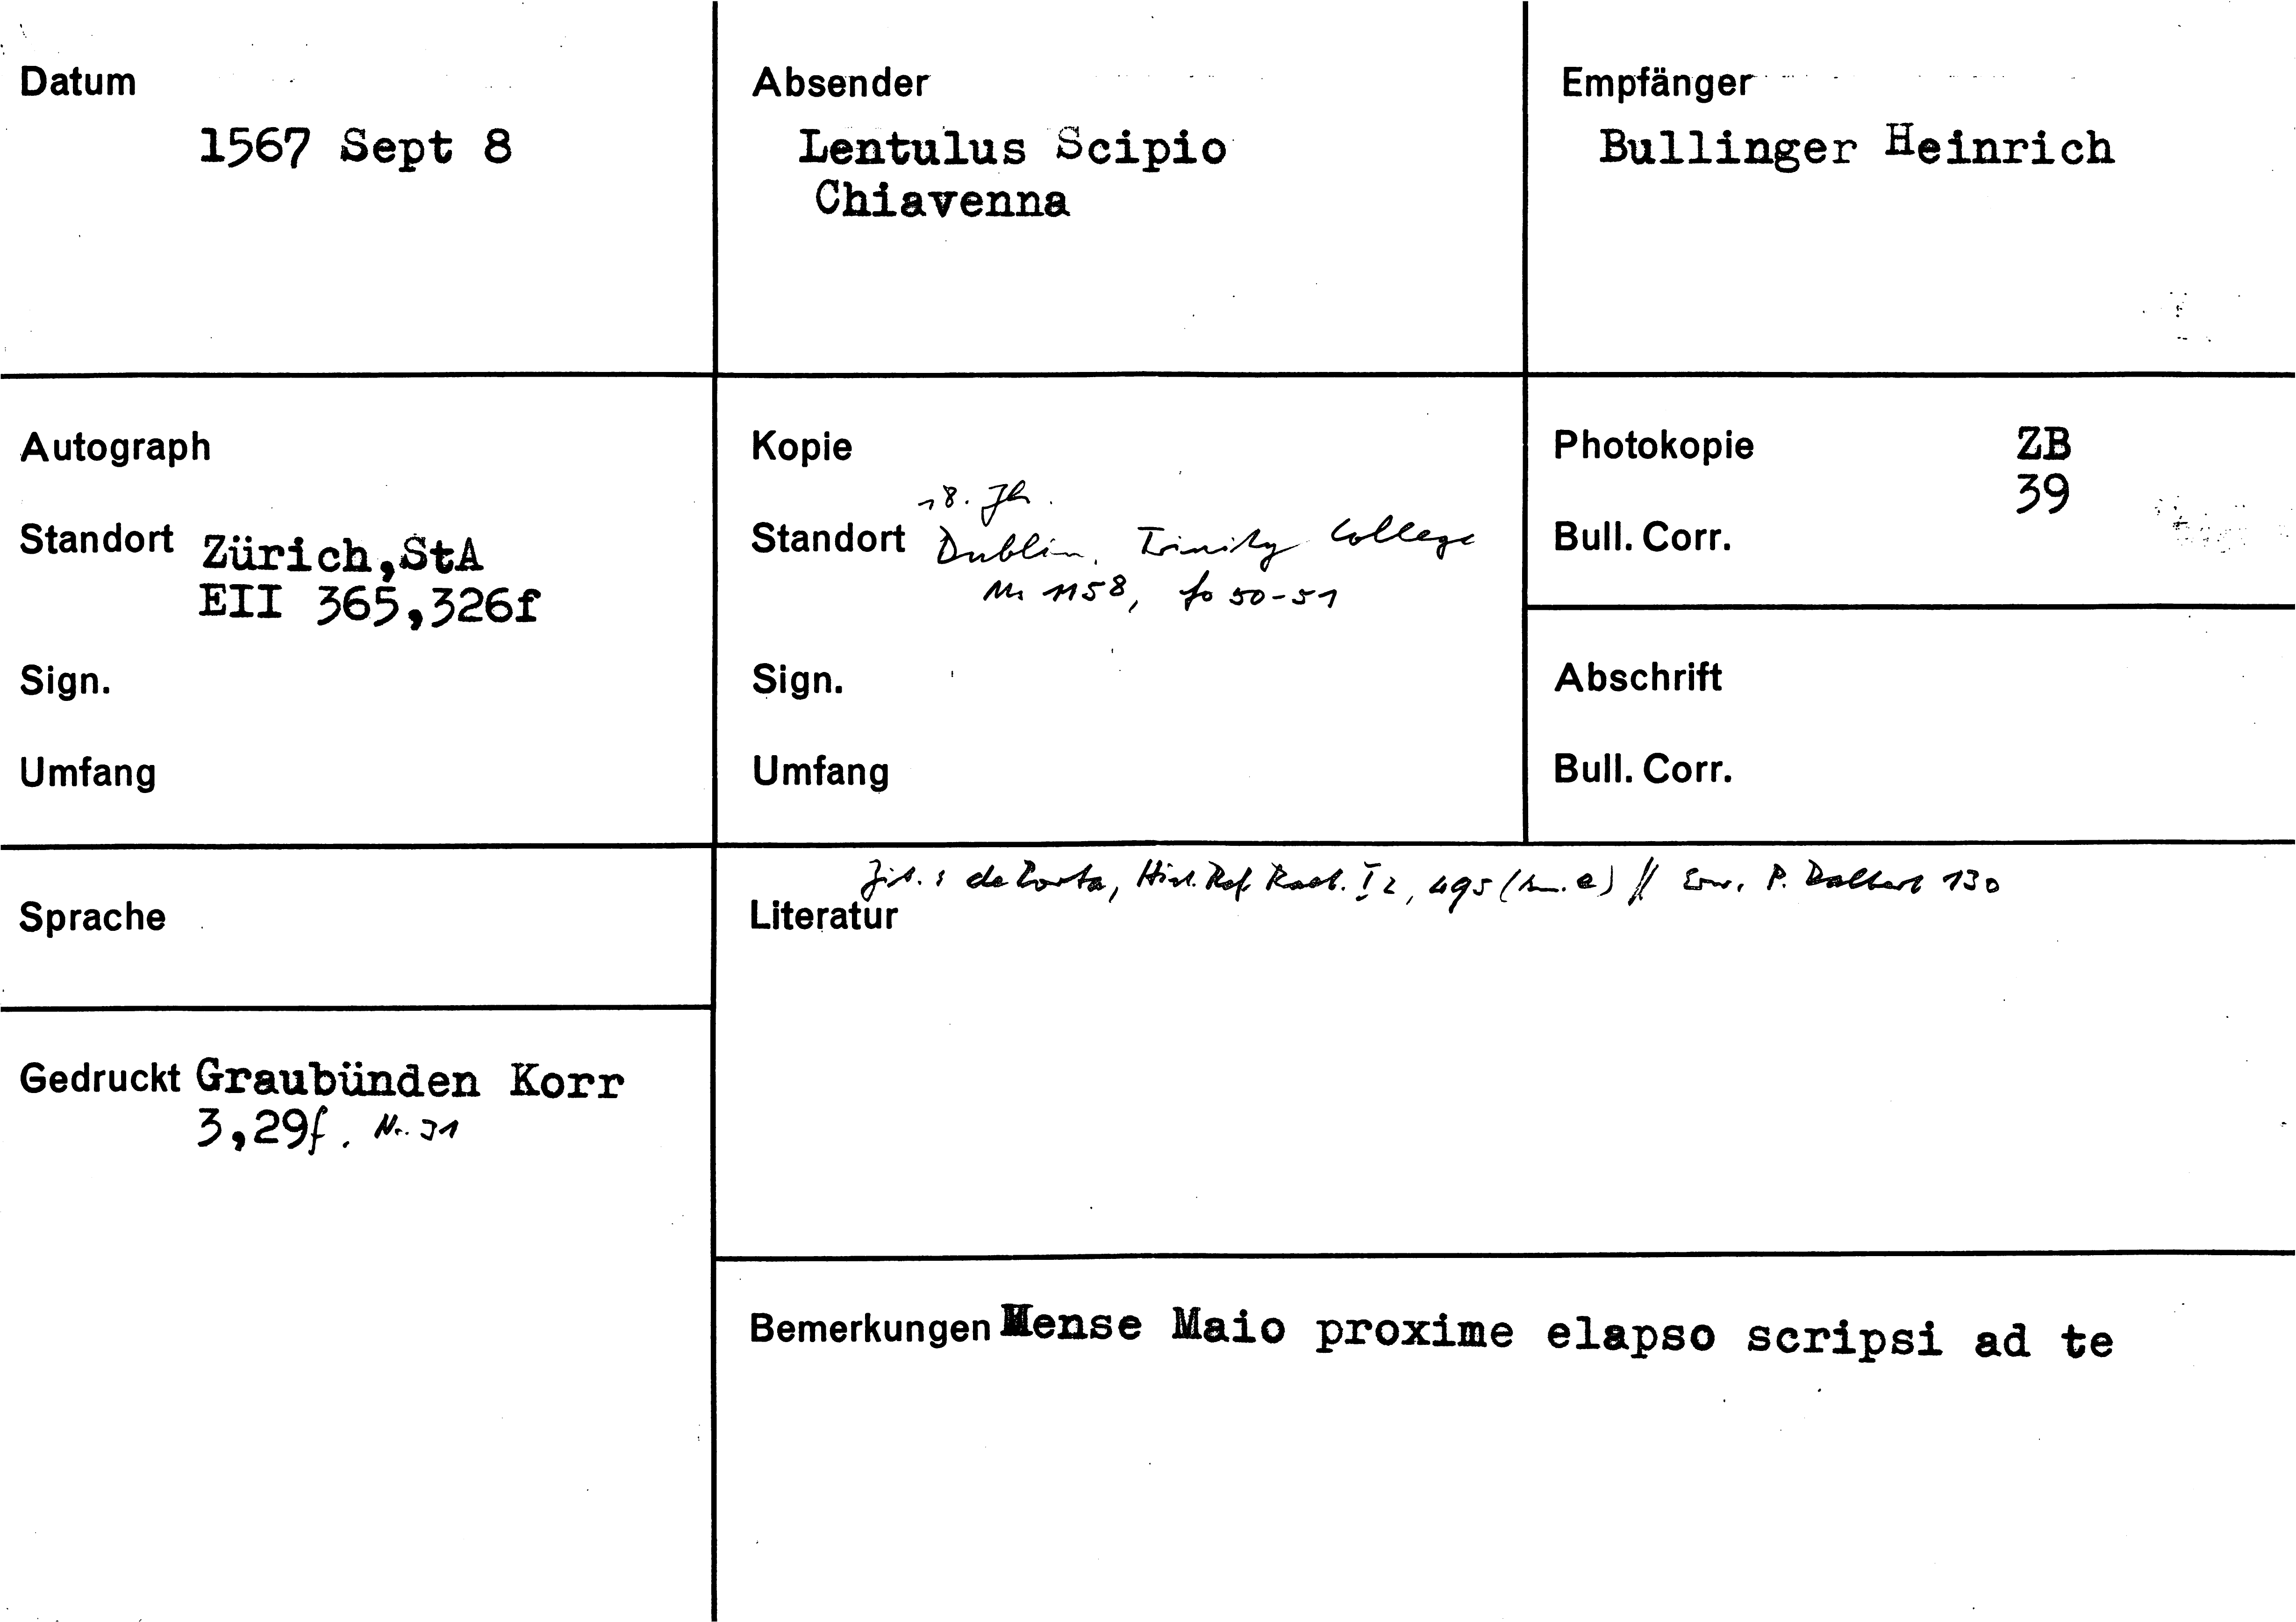 Datum
1567 Sept 8
Absender
Lentulus Scipio
Chiavenna
Empfänger
Bullinger Heinrich
Autograph
Standort Zürich,StA
EII 365,326f
Sign.
Umfang
Kopie
18. Jh.
Standort Dublin, Trinity College
Ms 1158, fo 50-51
Sign.
Umfang
Photokopie ZB
39
Bull. Corr.
Abschrift
Bull. Corr.
Sprache
Zit.: de Porta, Hist. Ref. Raet. I 2, 495 (Anm. e) // Erw. P. Dalbert 130
Literatur
Gedruckt Graubünden Korr
3,29f. Nr. 31
Bemerkungen Mense Maio proxime elapso scripsi ad te